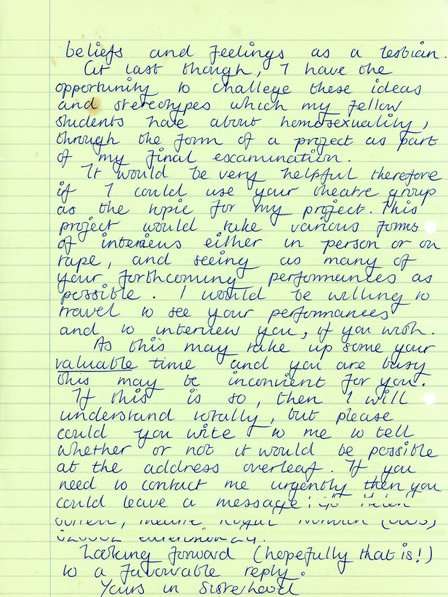 beliefs and feelings as a lesbian.
At last though, I have the
opportunity to challege these ideas
and stereotypes which my fellow
students have about homosexuality,
through the form of a project as part
of my final examination.
It would be very helpful therefore
if I could use your theatre group
as the topic for my project. This
project would take various forms
of interviews either in person or on
tape, and seeing as many of
your forthcoming performances as
possible. I would be willing to
travel to see your performances
and to interview you, if you wish.
As this may take up some your
valuable time and you are busy
this may be inconvient for you.
If this is so, then I will
understand totally, but please
could you wite to me to tell
whether or not it would be possible
at the address overleaf. If you
need to contact me urgently then you
could leave a message:
Looking forward (hopefully that is!)
to a favourable reply.
Yours in Sisterhood